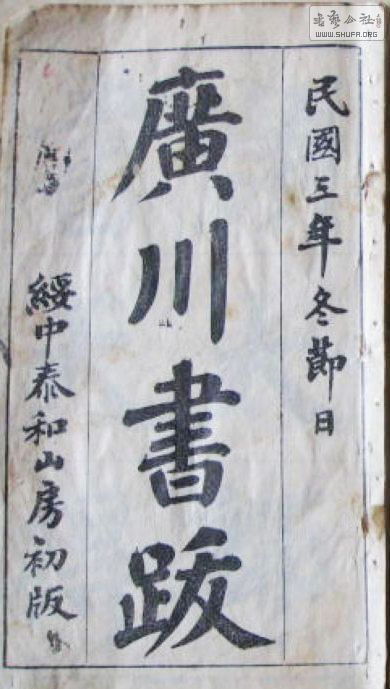 民國三年冬節日
廣川書跋
綏中泰和山房初版
书艺公社
WWW.SHUFA.ORG